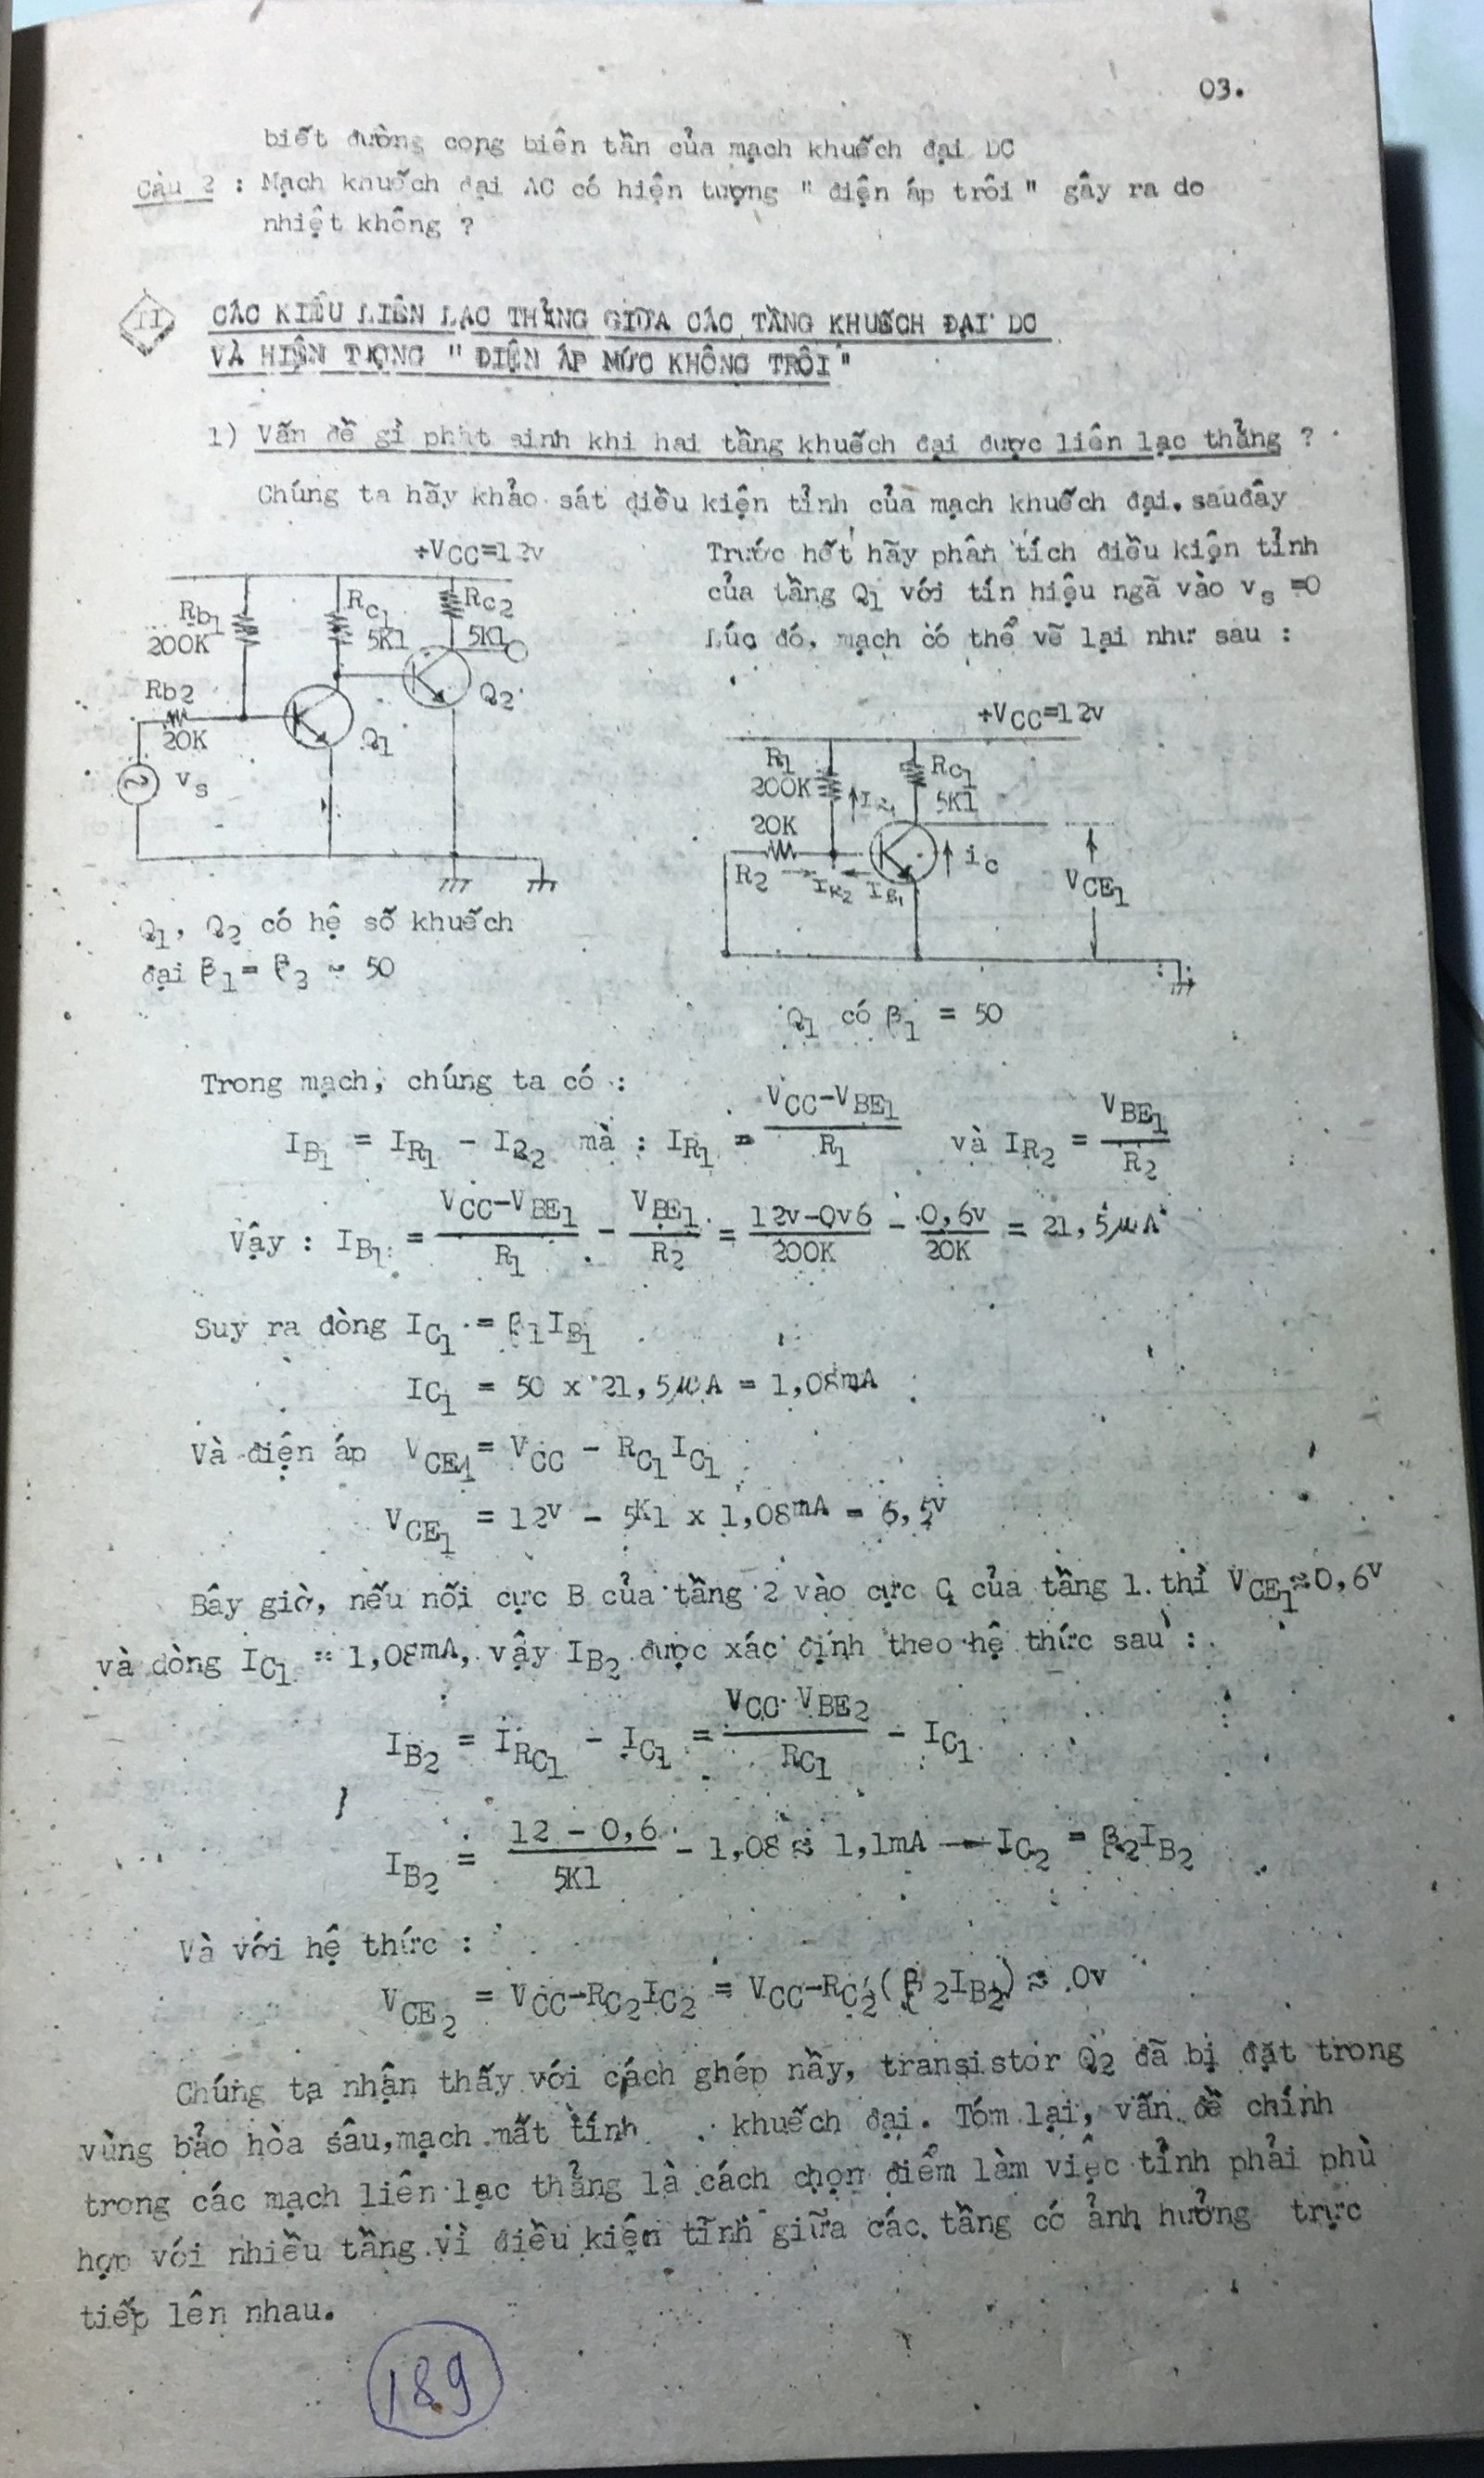 03.
biết đường cong biên tần của mạch khuếch đại DC
Câu 2 : Mạch khuếch đại AC có hiện tượng " điện áp trôi " gây ra do
nhiệt không ?
II CÁC KIỂU LIÊN LẠC THẲNG GIỮA CÁC TẦNG KHUẾCH ĐẠI DC
VÀ HIỆN TƯỢNG " ĐIỆN ÁP MỨC KHÔNG TRÔI "
1) Vấn đề gì phát sinh khi hai tầng khuếch đại được liên lạc thẳng ?
Chúng ta hãy khảo sát điều kiện tỉnh của mạch khuếch đại. sauđây
+VCC=12v
Rb1
200K
Rc1
5K1
Rc2
5K1
Rb2
20K
Q1
Q2
vs
Q1, Q2 có hệ số khuếch
đại β1= β3 ~ 50
Trước hết hãy phân tích điều kiện tỉnh
của tầng Q1 với tín hiệu ngã vào vs =0
Lúc đó, mạch có thể vẽ lại như sau :
+VCC=12v
R1
200K
RC1
5K1
20K
R2
IR2
IB1
ic
VCE1
Q1 có β1 = 50
Trong mạch, chúng ta có :
IB1 = IR1 - IR2 mà : IR1 = VCC-VBE1 / R1 và IR2 = VBE1 / R2
Vậy : IB1 = VCC-VBE1 / R1 - VBE1 / R2 = 12v-0v6 / 200K - 0,6v / 20K = 21,5µA
Suy ra dòng IC1 = β1IB1
IC1 = 50 x 21,5µA = 1,08mA
Và điện áp VCE1 = VCC - RC1IC1
VCE1 = 12v - 5K1 x 1,08mA = 6,5v
Bây giờ, nếu nối cực B của tầng 2 vào cực C của tầng 1. thì VCE1≈0,6v
và dòng IC1 = 1,08mA, vậy IB2 được xác định theo hệ thức sau :
IB2 = IRC1 - IC1 = VCC VBE2 / RC1 - IC1
IB2 = 12 - 0,6 / 5K1 - 1,08 ≈ 1,1mA → IC2 = β2IB2
Và với hệ thức :
VCE2 = VCC-RC2IC2 = VCC-RC2(β2IB2) ≈ 0v
Chúng ta nhận thấy với cách ghép nầy, transistor Q2 đã bị đặt trong
vùng bảo hòa sâu,mạch mất tính khuếch đại. Tóm lại, vấn đề chính
trong các mạch liên lạc thẳng là cách chọn điểm làm việc tỉnh phải phù
hợp với nhiều tầng vì điều kiện tĩnh giữa các tầng có ảnh hưởng trực
tiếp lên nhau.
189